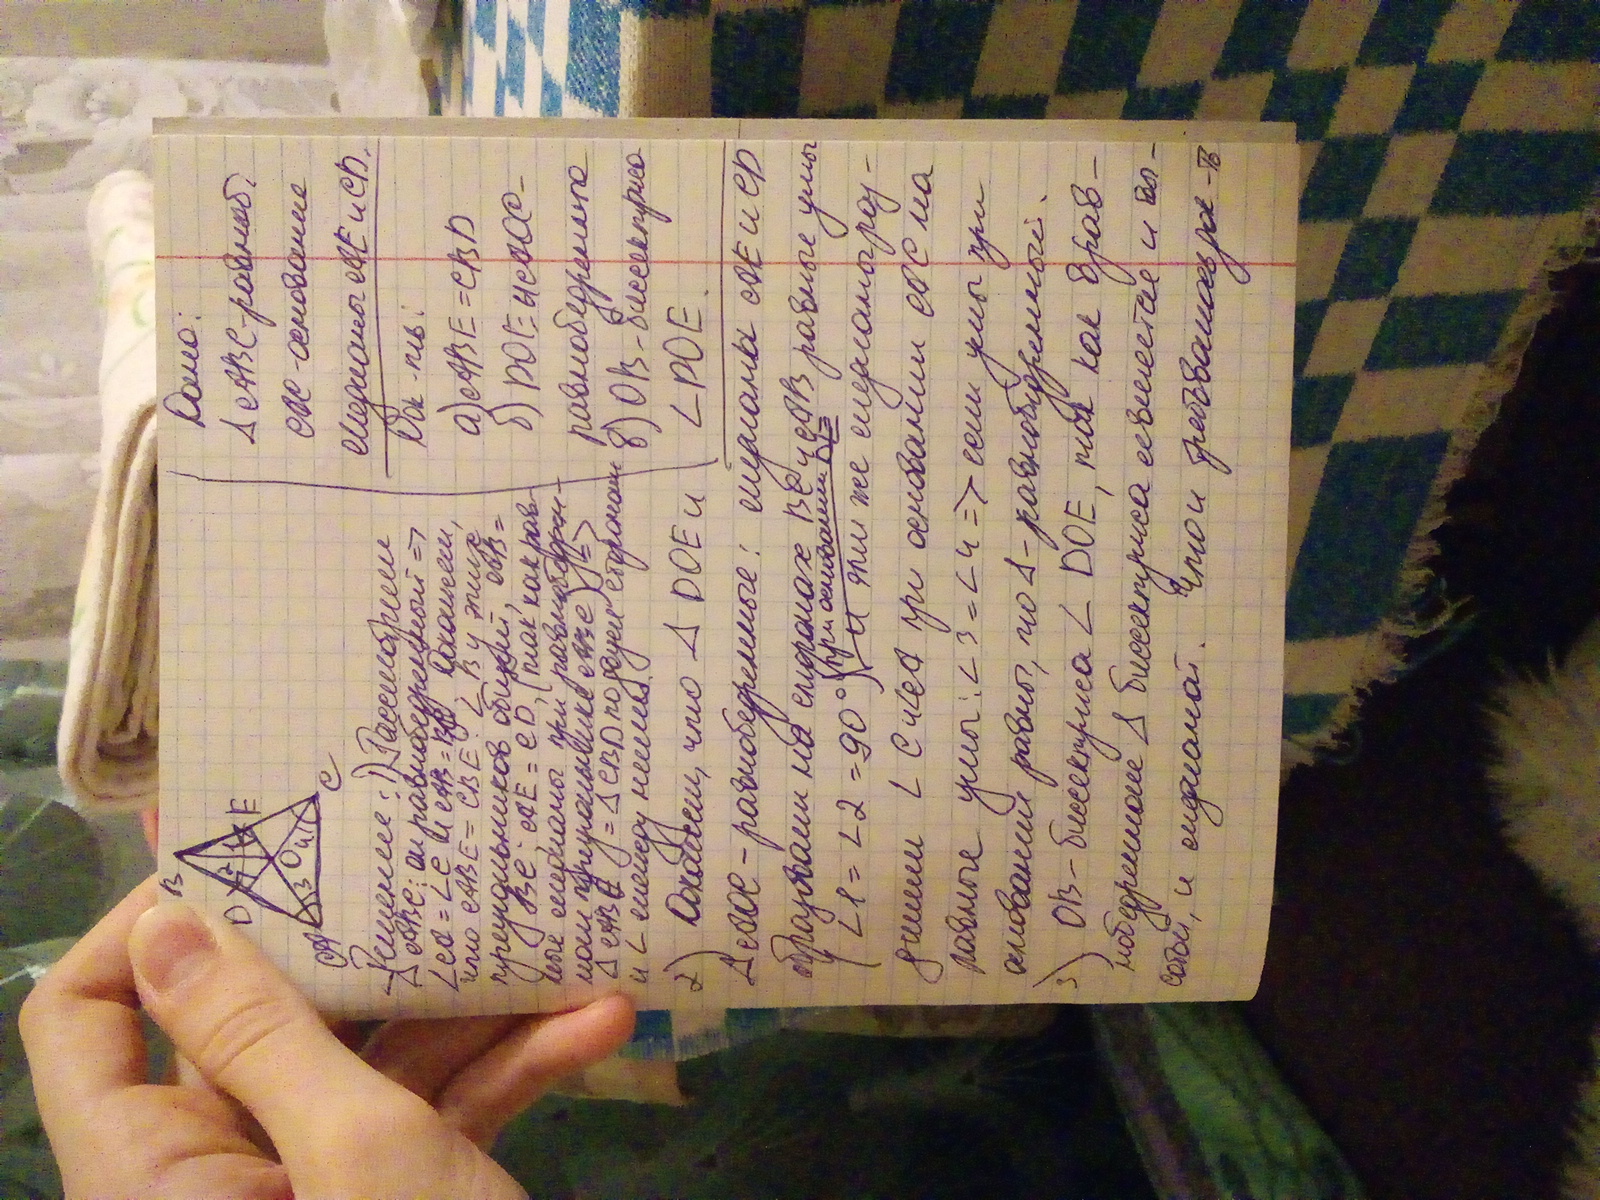 Дано:
Δ ABC - равноб.
AC - основание
медианы AE и CD.
Док-ть:
а) ABE = CBD
б) DOE и AOC -
равнобедренные
в) OB - биссектриса
∠ DOE.
B
D
E
1 2
O
3 4
A
C
Решение: 1) Рассмотрим
Δ ABC: он равнобедренный =>
∠ A = ∠ C и AB = Докажем,
что ABE = CBE: ∠ B у этих
треугольников общий AB =
BC AE = CD, (так, как рав-
ные медианы при равнобедрен-
ном треугольнике ABC) =>
Δ ABE = Δ CBD по двум сторонам
и ∠ между ними.
2) Докажем, что Δ DOE и
Δ AOC - равнобедренные: медиана AE и CD
образовали на сторонах BC и AB равные углы
(∠1 = ∠2 = 90° (при основании DE) и эти же медианы разде-
∠ C при основании AC на
равные углы: ∠3 = ∠4 => если углы при
оснований равны, то Δ - равнобедренный.
3) OB - биссектриса ∠ DOE, так как в рав-
нобедренном Δ биссектриса является и вы-
сотой, и медианой. Что и требовалось док-ть